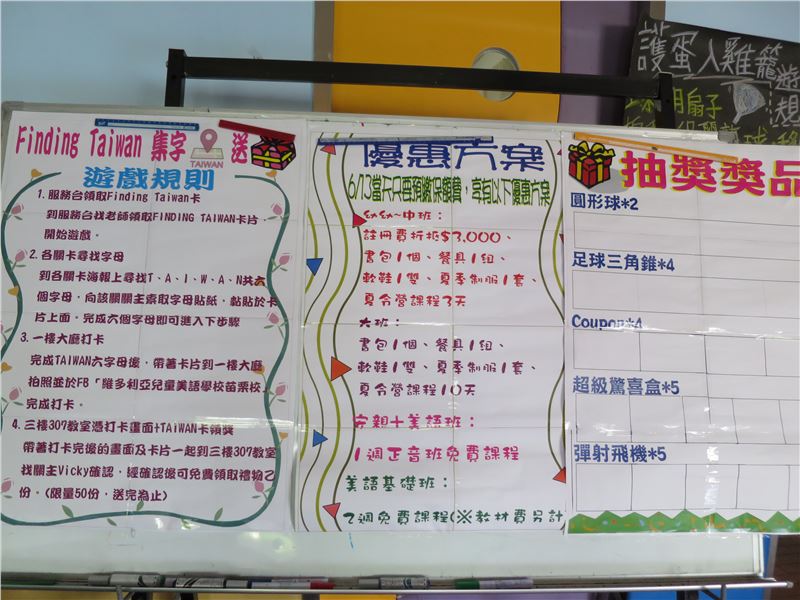 Finding Taiwan 集字
TAIWAN
送
遊戲規則
1. 服務台領取Finding Taiwan卡
到服務台找老師領取FINDING TAIWAN卡片，
開始遊戲。
2. 各關卡尋找字母
到各關卡海報上尋找T、A、I、W、A、N共六
個字母，向該關關主索取字母貼紙，黏貼於卡
片上面。完成六個字母即可進入下步驟
3. 一樓大廳打卡
完成TAIWAN六字母後，帶著卡片到一樓大廳
拍照並於FB「維多利亞兒童美語學校苗栗校
完成打卡。
4. 三樓307教室憑打卡畫面+TAIWAN卡領獎
帶著打卡完後的畫面及卡片一起到三樓307教室
找關主Vicky確認，經確認後可免費領取禮物乙
份。(限量50份，送完為止)
優惠方案
6/13當天只要預繳保額費，享有以下優惠方案
幼幼~中班：
註冊費折抵$3,000、
書包1個、餐具1組、
軟鞋1雙、夏季制服1套、
夏令營課程3天
大班：
書包1個、餐具1組、
軟鞋1雙、夏季制服1套、
夏令營課程10天
安親+美語班：
1週正音班免費課程
美語基礎班：
2週免費課程(※教材費另計
抽獎獎品
圓形球*2
足球三角錐*4
Coupon*4
超級驚喜盒*5
彈射飛機*5
護蛋入雞籠
用扇子